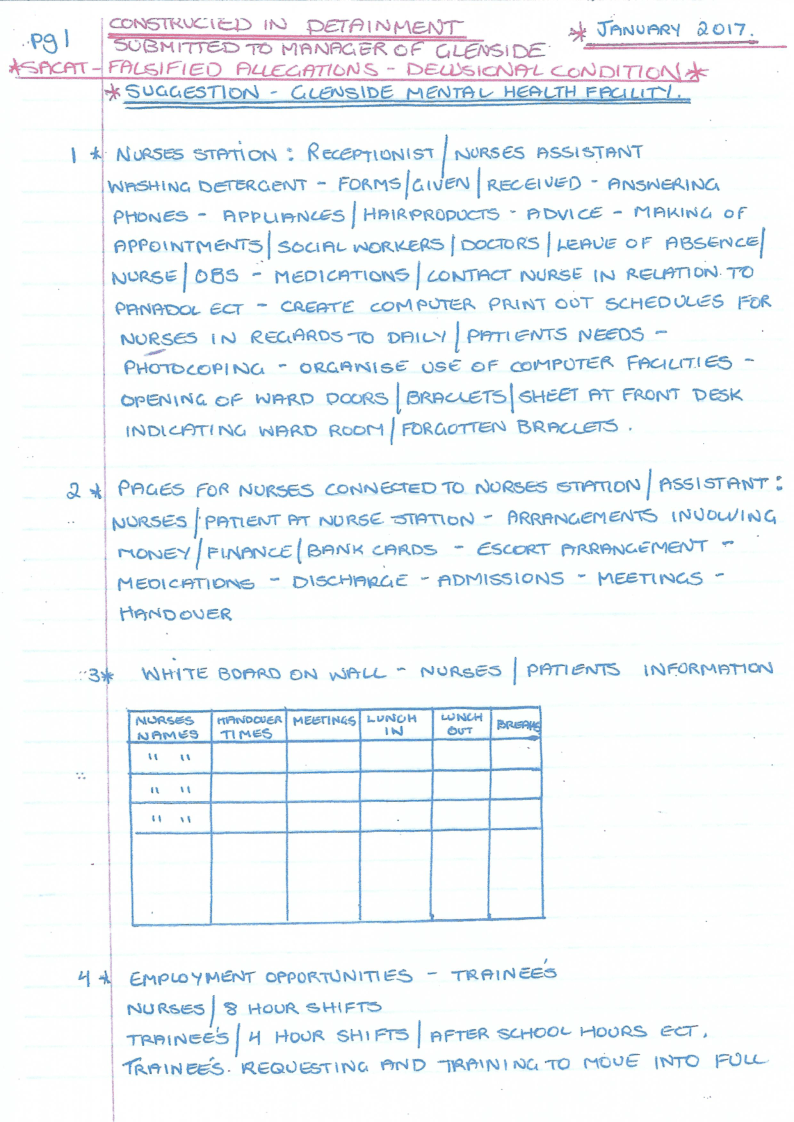 pg 1
CONSTRUCTED IN DETAINMENT
* JANUARY 2017.
SUBMITTED TO MANAGER OF GLENSIDE
*SACAT - FALSIFIED ALLEGATIONS - DELUSIONAL CONDITION *
* SUGGESTION - GLENSIDE MENTAL HEALTH FACILITY.
1 * NURSES STATION : RECEPTIONIST | NURSES ASSISTANT
WASHING DETERGENT - FORMS | GIVEN | RECEIVED - ANSWERING
PHONES - APPLIANCES | HAIRPRODUCTS - ADVICE - MAKING OF
APPOINTMENTS | SOCIAL WORKERS | DOCTORS | LEAVE OF ABSENCE |
NURSE | OBS - MEDICATIONS | CONTACT NURSE IN RELATION TO
PANADOL ECT - CREATE COMPUTER PRINT OUT SCHEDULES FOR
NURSES IN REGARDS TO DAILY | PATIENTS NEEDS -
PHOTOCOPING - ORGANISE USE OF COMPUTER FACILITIES -
OPENING OF WARD DOORS | BRACLETS | SHEET AT FRONT DESK
INDICATING WARD ROOM | FORGOTTEN BRACLETS .
2 * PAGES FOR NURSES CONNECTED TO NURSES STATION | ASSISTANT :
NURSES | PATIENT AT NURSE STATION - ARRANGEMENTS INVOLVING
MONEY | FINANCE | BANK CARDS - ESCORT ARRANGEMENT -
MEDICATIONS - DISCHARGE - ADMISSIONS - MEETINGS -
HANDOVER
3* WHITE BOARD ON WALL - NURSES | PATIENTS INFORMATION
NURSES NAMES
HANDOVER TIMES
MEETINGS
LUNCH IN
LUNCH OUT
BREAKS
" "
" "
" "
4 * EMPLOYMENT OPPORTUNITIES - TRAINEE'S
NURSES | 8 HOUR SHIFTS
TRAINEE'S | 4 HOUR SHIFTS | AFTER SCHOOL HOURS ECT.
TRAINEE'S. REQUESTING AND TRAINING TO MOVE INTO FULL